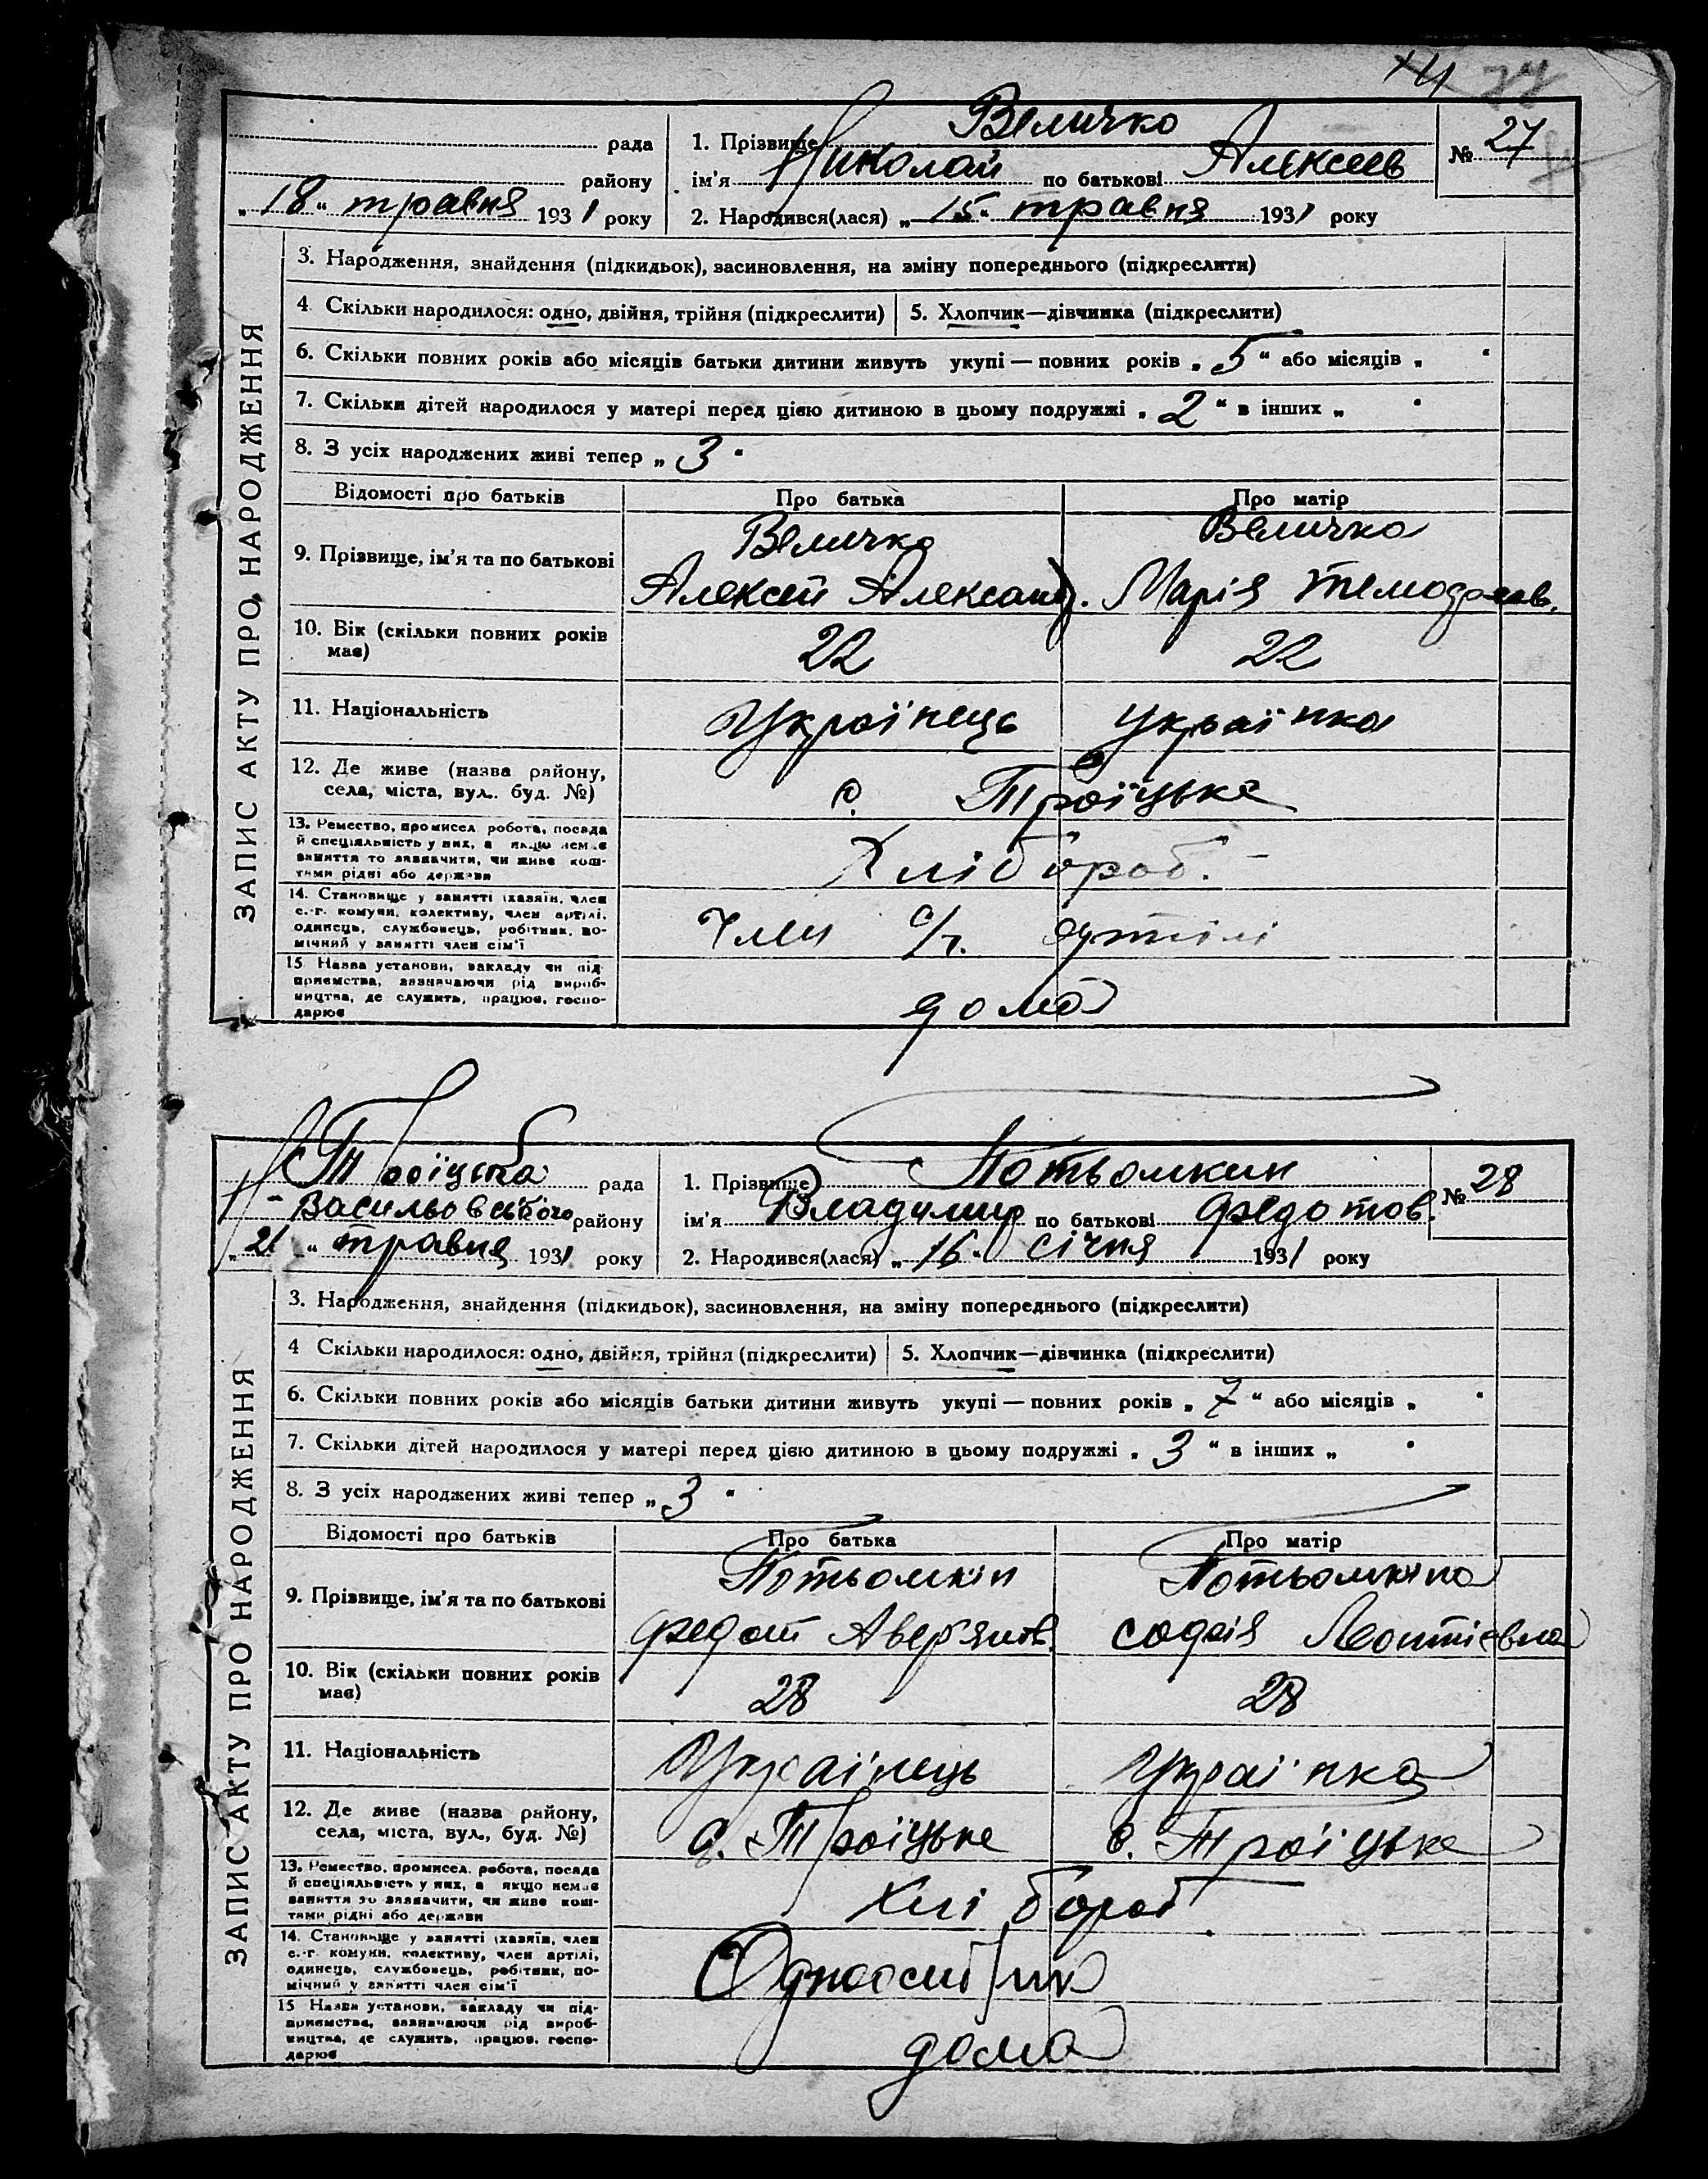 27
Величко
рада 1. Прізвище
Николай Алексеев № 27
району ім'я по батькові
„18“ травня 1931 року 2. Народився(лася) „15“ травня 1931 року
ЗАПИС АКТУ ПРО НАРОДЖЕННЯ
3. Народження, знайдення (підкидьок), засиновлення, на зміну попереднього (підкреслити)
4 Скільки народилося: одно, двійня, трійня (підкреслити) 5. Хлопчик—дівчинка (підкреслити)
6. Скільки повних років або місяців батьки дитини живуть укупі — повних років „5“ або місяців „ “
7. Скільки дітей народилося у матері перед цією дитиною в цьому подружжі „2“ в інших „ “
8. З усіх народжених живі тепер „3“
Відомості про батьків Про батька Про матір
Величко Величко
9. Прізвище, ім'я та по батькові
Алексей Александ. Марія
10. Вік (скільки повних років
має) 22 22
11. Національність Українець Українка
12. Де живе (назва району,
села, міста, вул. буд. №) с. Троїцьке
13. Ремество, промисел робота, посада
й спеціяльність у них, а якщо немає
заняття то зазначити, чи живе кош-
тами рідні або держави Хлібороб.
14. Становище у занятті (хазяїн, член
с.-г. комуни, колективу, член артілі,
одинець, службовець, робітник, по-
мічний у занятті член сім'ї Член с/г. артілі
15 Назва установи, закладу чи під-
приємства, зазначаючи рід вироб-
ництва, де служить, працює, госпо-
дарює дома
Троїцька рада 1. Прізвище Потьомкин № 28
Васильовського району ім'я Владимир по батькові Федотов.
„21“ травня 1931 року 2. Народився(лася) „16“ січня 1931 року
ЗАПИС АКТУ ПРО НАРОДЖЕННЯ
3. Народження, знайдення (підкидьок), засиновлення, на зміну попереднього (підкреслити)
4 Скільки народилося: одно, двійня, трійня (підкреслити) 5. Хлопчик—дівчинка (підкреслити)
6. Скільки повних років або місяців батьки дитини живуть укупі — повних років „7“ або місяців „ “
7. Скільки дітей народилося у матері перед цією дитиною в цьому подружжі „3“ в інших „ “
8. З усіх народжених живі тепер „3“
Відомості про батьків Про батька Про матір
Потьомкін Потьомкіна
9. Прізвище, ім'я та по батькові
Федот Авер'янов. Софія Леонтіевна
10. Вік (скільки повних років
має) 28 28
11. Національність Українець Українка
12. Де живе (назва району,
села, міста, вул., буд. №) с. Троїцьке с. Троїцьке
13. Ремество, промисел, робота, посада
й спеціяльність у них, а якщо немає
заняття то зазначити, чи живе кош-
тами рідні або держави Хлібороб
14. Становище у занятті (хазяїн, член
с.-г. комуни, колективу, член артілі,
одинець, службовець, робітник, по-
мічний у занятті член сім'ї Одноосібник
15 Назва установи, закладу чи під-
приємства, зазначаючи рід вироб-
ництва, де служить, працює, госпо-
дарює дома